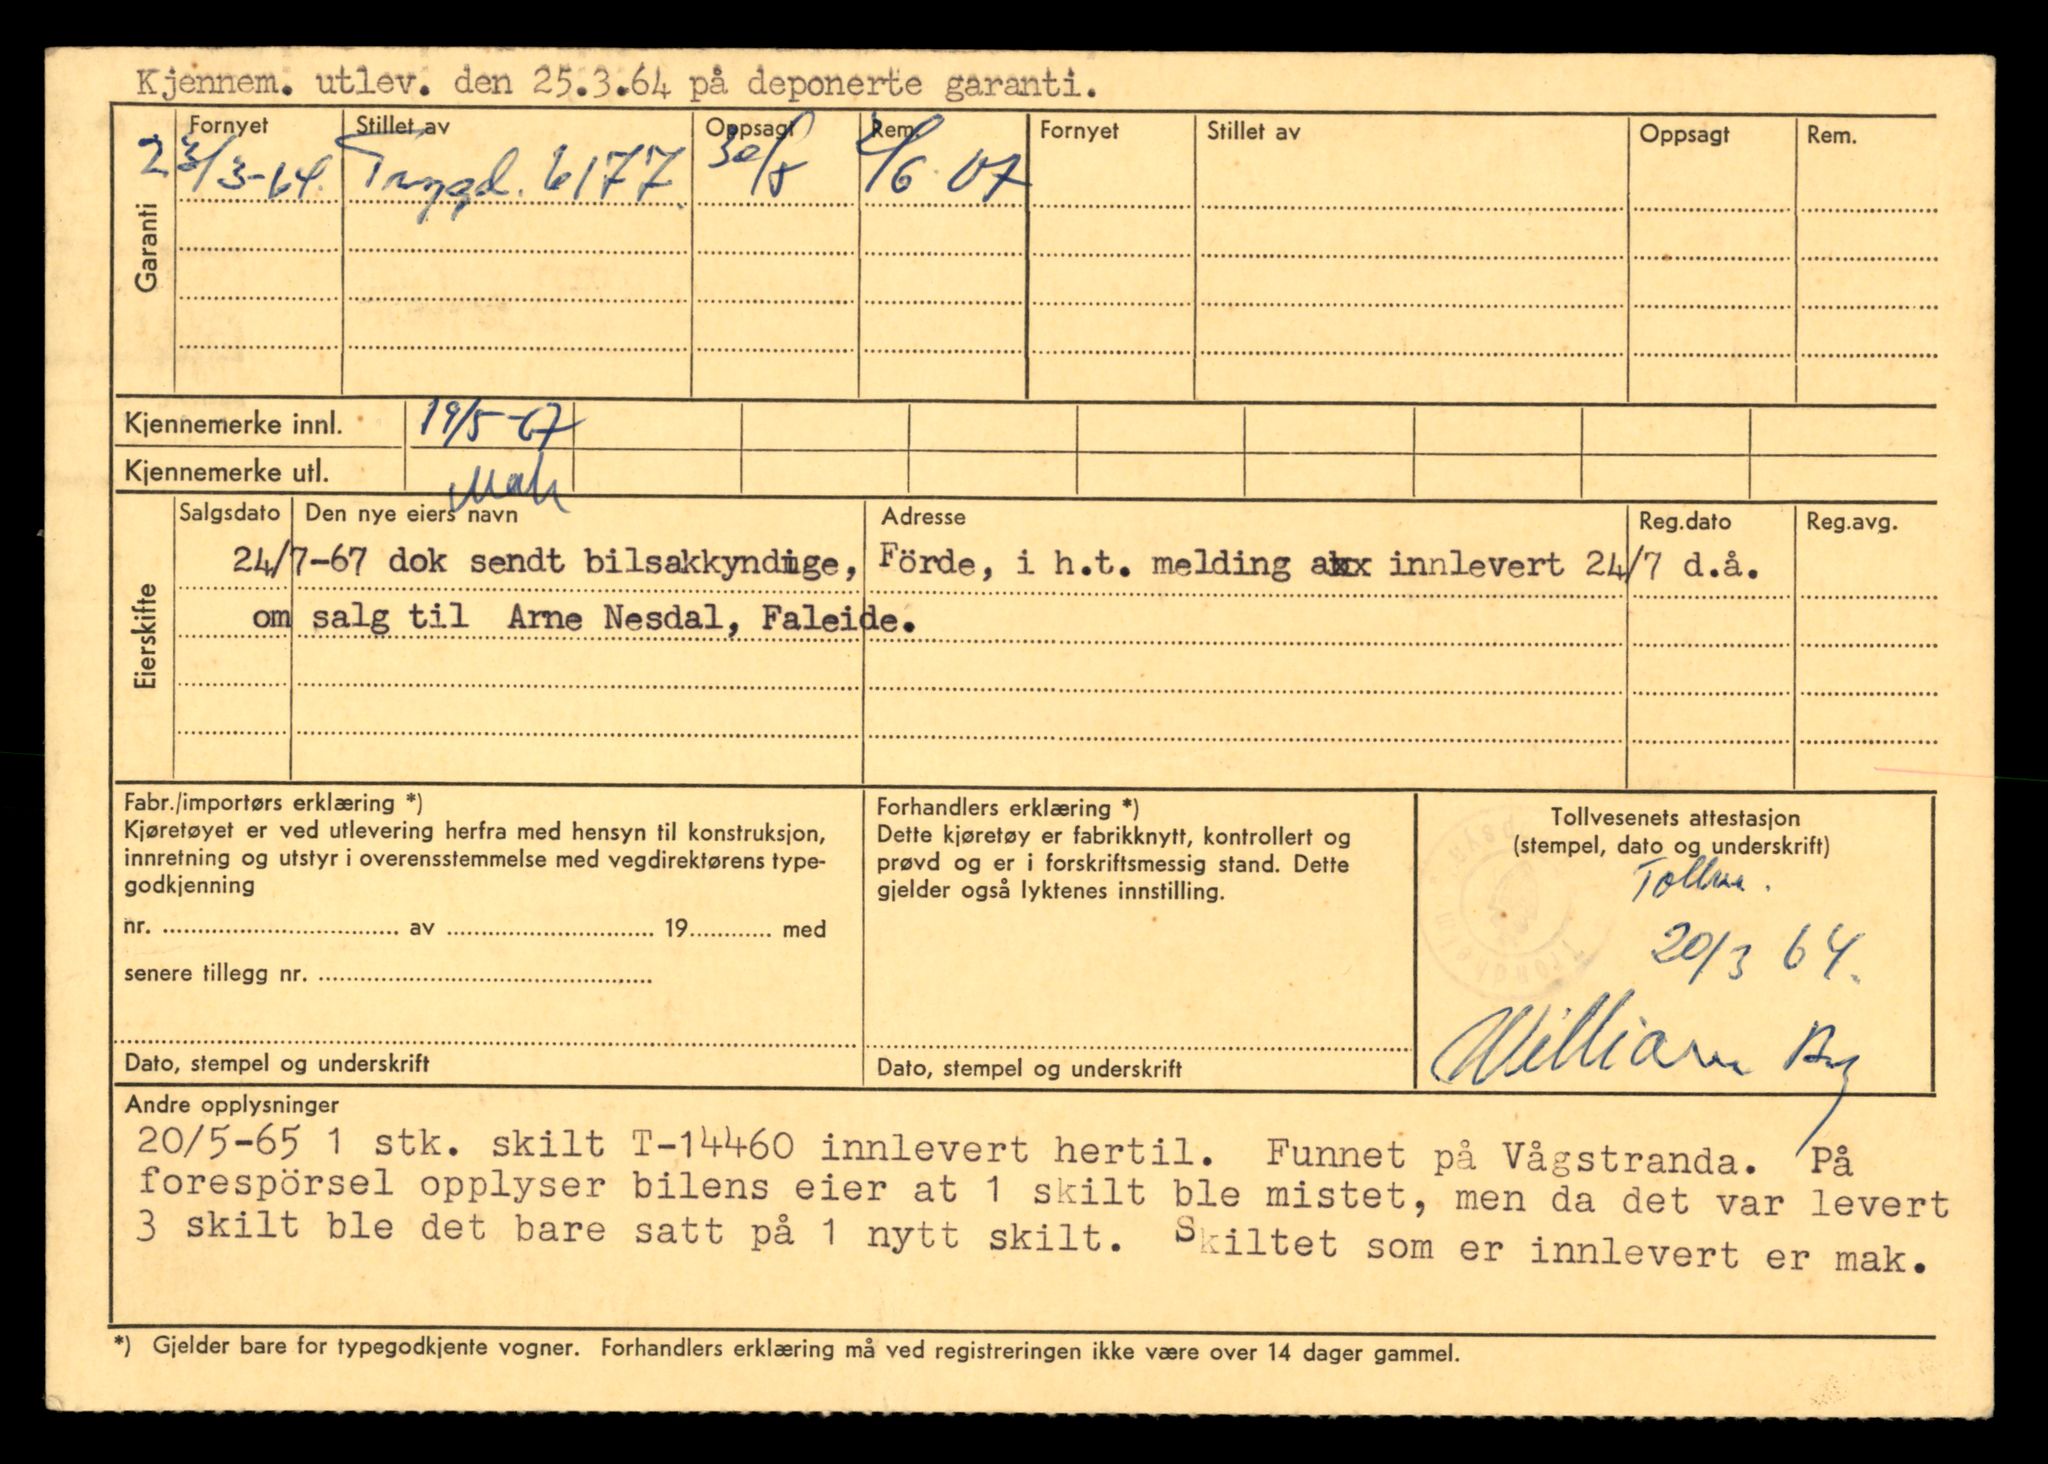 Kjennem. utlev. den 25.3.64 på deponerte garanti.
Garanti
Fornyet Stillet av Oppsagt Rem. Fornyet Stillet av Oppsagt Rem.
23/3-64. Trygd. 6177. 30/5 2/6 67
Kjennemerke innl. 19/5-67
Kjennemerke utl. Mak
Eierskifte
Salgsdato Den nye eiers navn Adresse Reg.dato Reg.avg.
24/7-67 dok sendt bilsakkyndige, Förde, i h.t. melding innlevert 24/7 d.å.
om salg til Arne Nesdal, Faleide.
Fabr./importørs erklæring *)
Kjøretøyet er ved utlevering herfra med hensyn til konstruksjon,
innretning og utstyr i overensstemmelse med vegdirektørens type-
godkjenning
nr. .......... av .......... 19.......... med
senere tillegg nr. ..........
Dato, stempel og underskrift
Forhandlers erklæring *)
Dette kjøretøy er fabrikknytt, kontrollert og
prøvd og er i forskriftsmessig stand. Dette
gjelder også lyktenes innstilling.
Dato, stempel og underskrift
Tollvesenets attestasjon
(stempel, dato og underskrift)
20/3 64.
William
Andre opplysninger
20/5-65 1 stk. skilt T-14460 innlevert hertil. Funnet på Vågstranda. På
forespörsel opplyser bilens eier at 1 skilt ble mistet, men da det var levert
3 skilt ble det bare satt på 1 nytt skilt. Skiltet som er innlevert er mak.
*) Gjelder bare for typegodkjente vogner. Forhandlers erklæring må ved registreringen ikke være over 14 dager gammel.